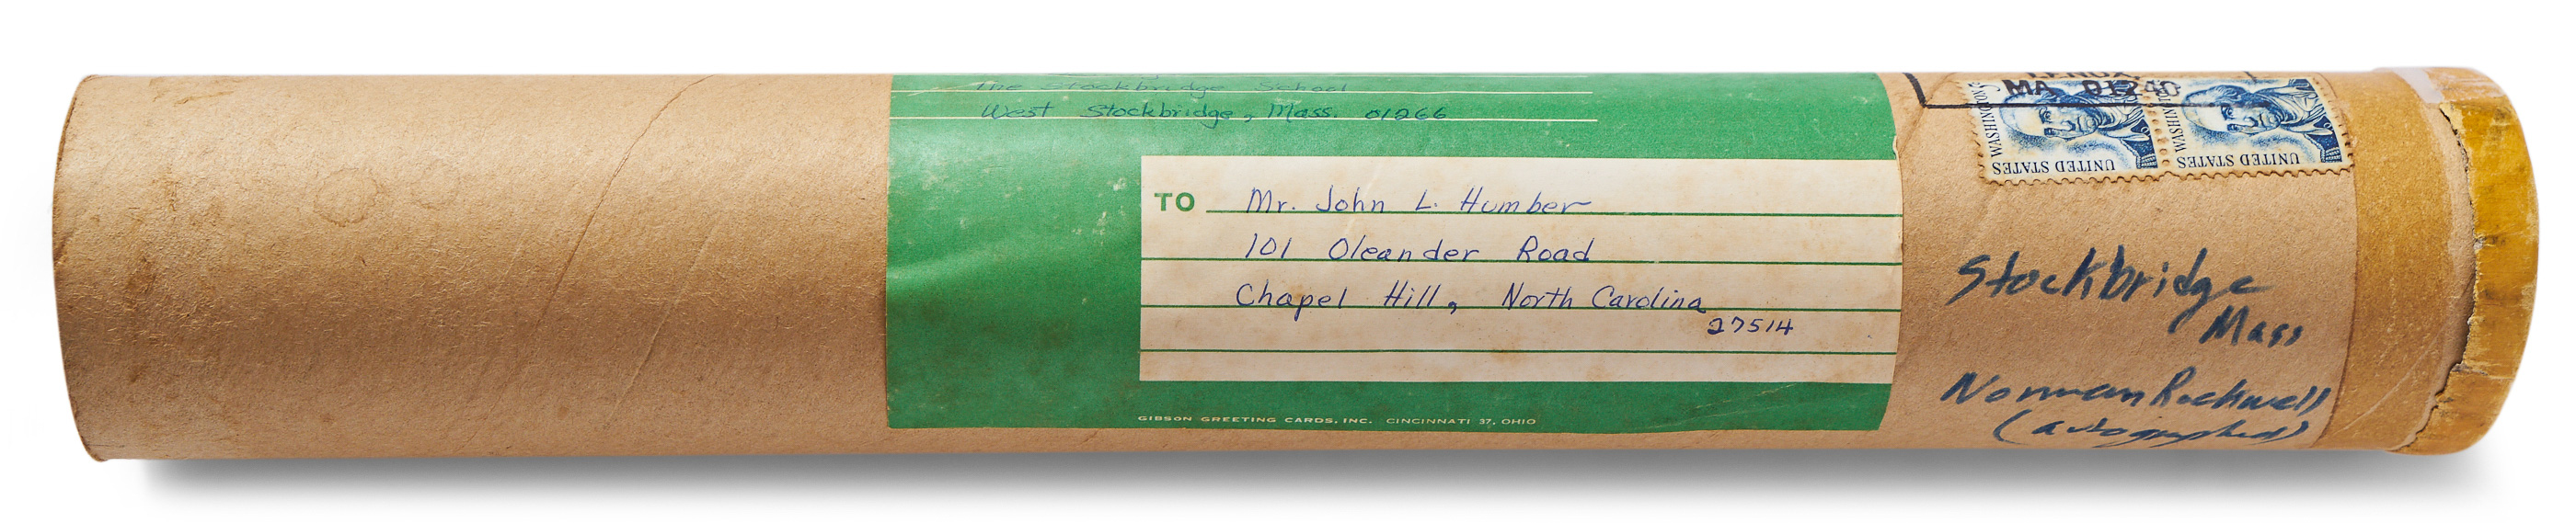 The Stockbridge School
West Stockbridge, Mass. 01266
TO Mr. John L. Humber
101 Oleander Road
Chapel Hill, North Carolina
27514
GIBSON GREETING CARDS, INC. CINCINNATI 37, OHIO
LENOX,
MA 01240
WASHINGTON
UNITED STATES
WASHINGTON
UNITED STATES
Stockbridge
Mass
Norman Rockwell
(autographed)